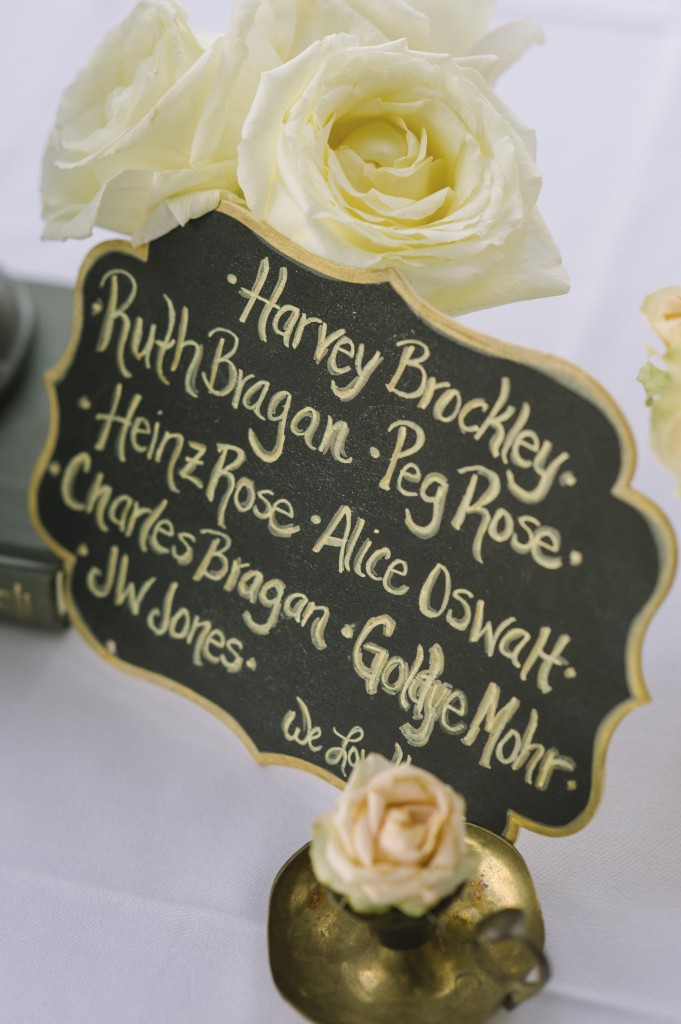 · Harvey Brockley ·
· Ruth Bragan · Peg Rose ·
· Heinz Rose · Alice Oswalt ·
· Charles Bragan · Goldye Mohr ·
· JW Jones ·
We Lov